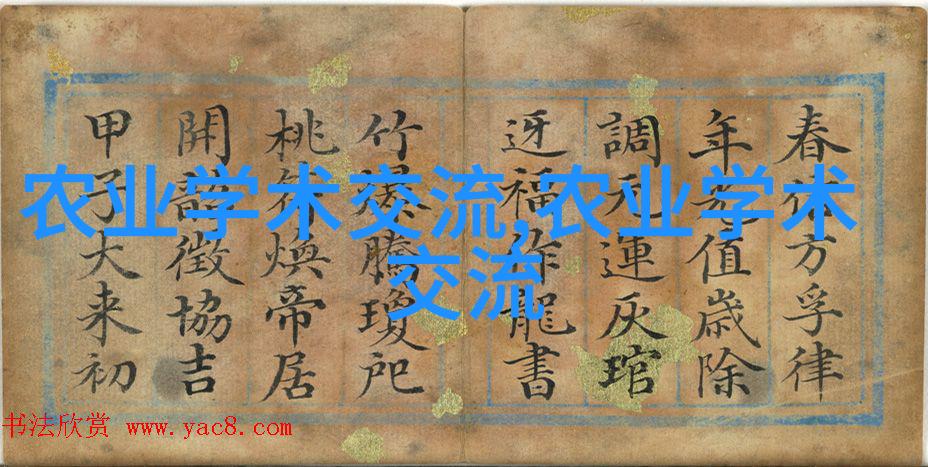 农业学术交流,农业学术
交流
春方孚律
年光值歲除
調元運灰琯
迓福作龍書
竹爆騰瓊
桃符煥帝居
開韶徵協吉
甲子大来初
书法欣赏 www.yac8.com